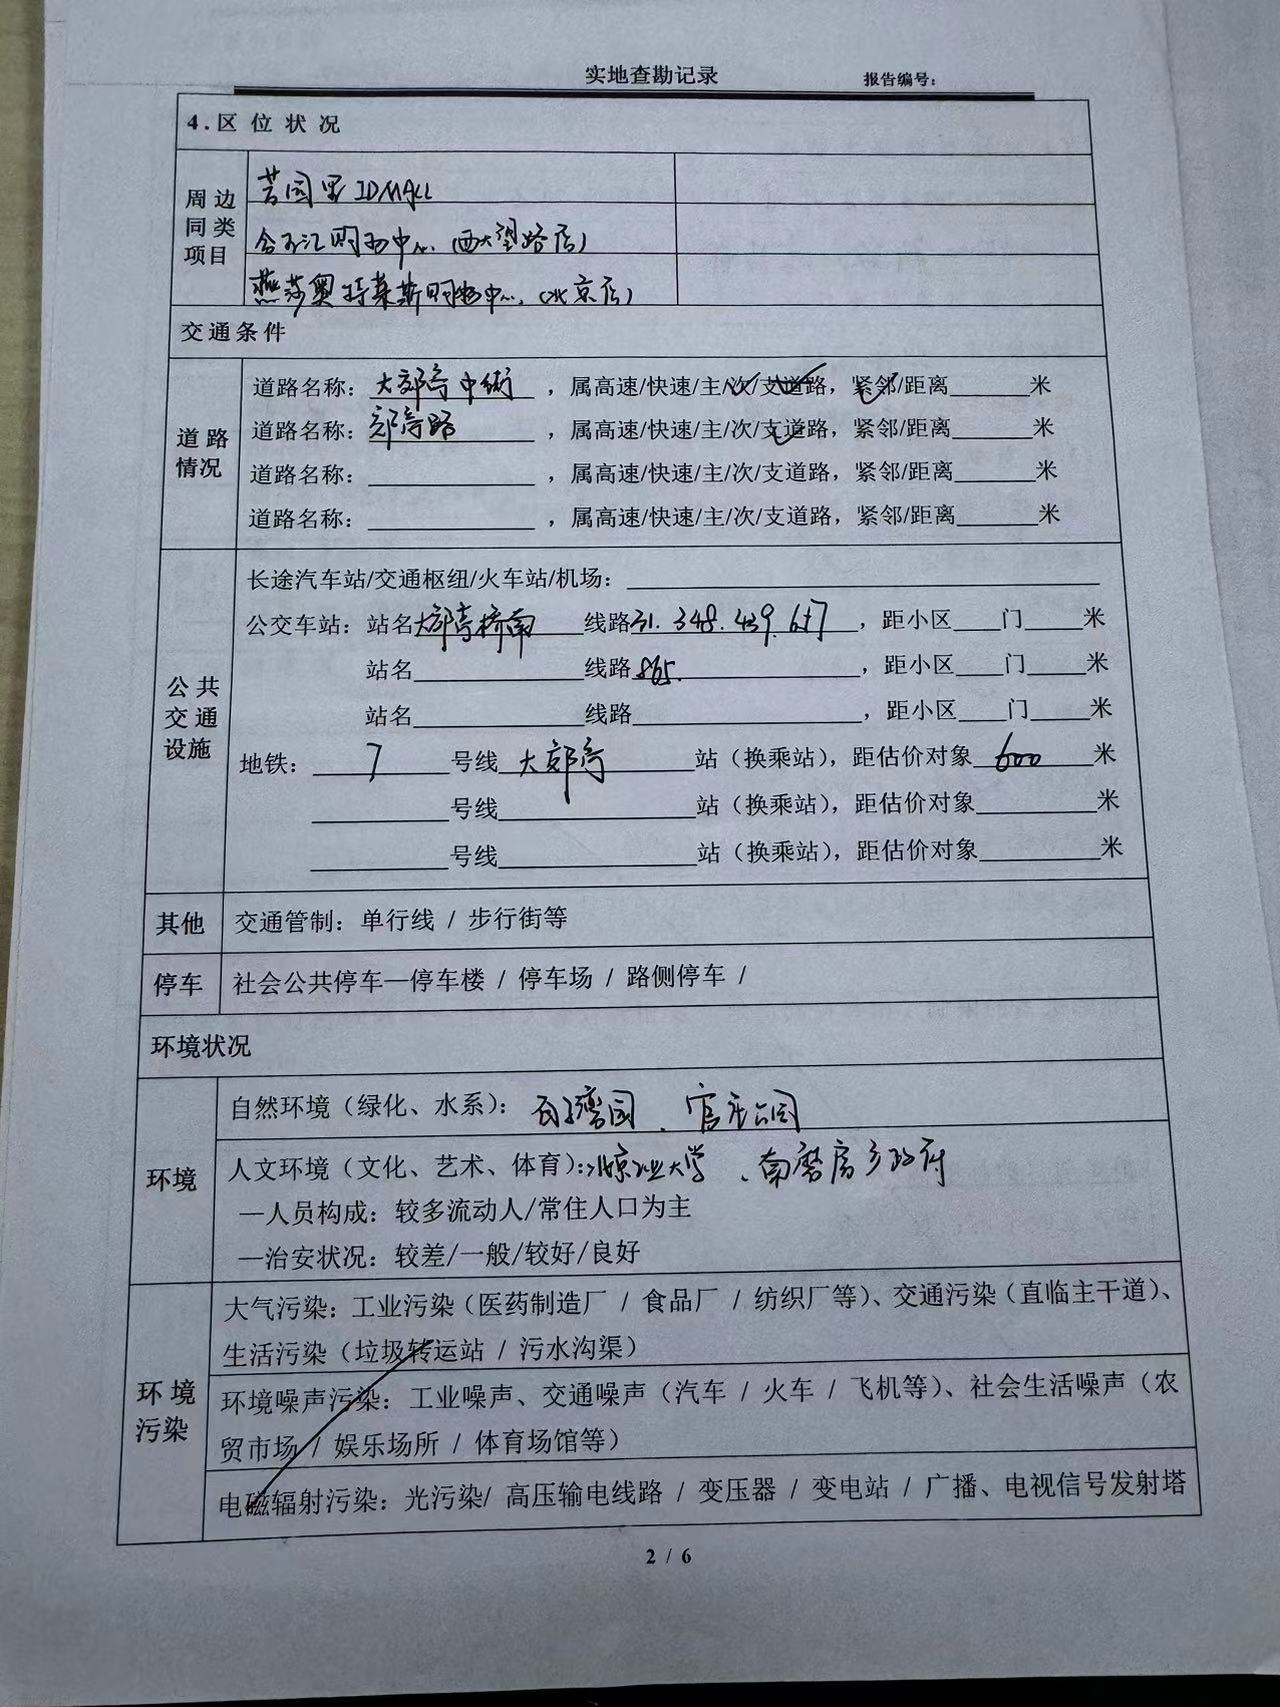 实地查勘记录 报告编号：
4.区位状况
周边同类项目
苦园里 JDMALL
合生汇购物中心（西大望路店）
燕莎奥特莱斯购物中心（北京店）
交通条件
道路情况
道路名称：大郊亭中街，属高速/快速/主/次/支道路，紧邻/距离______米
道路名称：郊亭路，属高速/快速/主/次/支道路，紧邻/距离______米
道路名称：____________，属高速/快速/主/次/支道路，紧邻/距离______米
道路名称：____________，属高速/快速/主/次/支道路，紧邻/距离______米
公共交通设施
长途汽车站/交通枢纽/火车站/机场：____________
公交车站：站名大郊亭桥南 线路31. 348. 439. 657，距小区____门____米
站名____________线路865.，距小区____门____米
站名____________线路____________，距小区____门____米
地铁：7号线大郊亭站（换乘站），距估价对象600米
______号线____________站（换乘站），距估价对象______米
______号线____________站（换乘站），距估价对象______米
其他 交通管制：单行线 / 步行街等
停车 社会公共停车—停车楼 / 停车场 / 路侧停车 /
环境状况
环境
自然环境（绿化、水系）： 官庄公园
人文环境（文化、艺术、体育）：北京工业大学、南磨房乡政府
—人员构成：较多流动人/常住人口为主
—治安状况：较差/一般/较好/良好
环境污染
大气污染：工业污染（医药制造厂 / 食品厂 / 纺织厂等）、交通污染（直临主干道）、
生活污染（垃圾转运站 / 污水沟渠）
环境噪声污染：工业噪声、交通噪声（汽车 / 火车 / 飞机等）、社会生活噪声（农
贸市场 / 娱乐场所 / 体育场馆等）
电磁辐射污染：光污染/ 高压输电线路 / 变压器 / 变电站 / 广播、电视信号发射塔
2 / 6